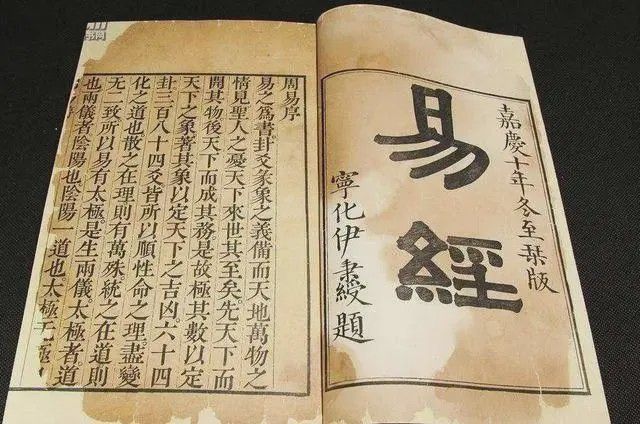 嘉慶十年冬至栞版
易經
寧化伊秉綬題
周易序
易之爲書卦爻彖象之義備而天地萬物之
情見聖人之憂天下來世其至矣。先天下而
開其物後天下而成其務是故極其數以定
天下之象著其象以定天下之吉凶六十四
卦三百八十四爻皆所以順性命之理。盡變
化之道也散之在理則有萬殊。統之在道則
无二致所以易有太極。是生兩儀。太極者道
也兩儀者陰陽也陰陽一道也太極无極